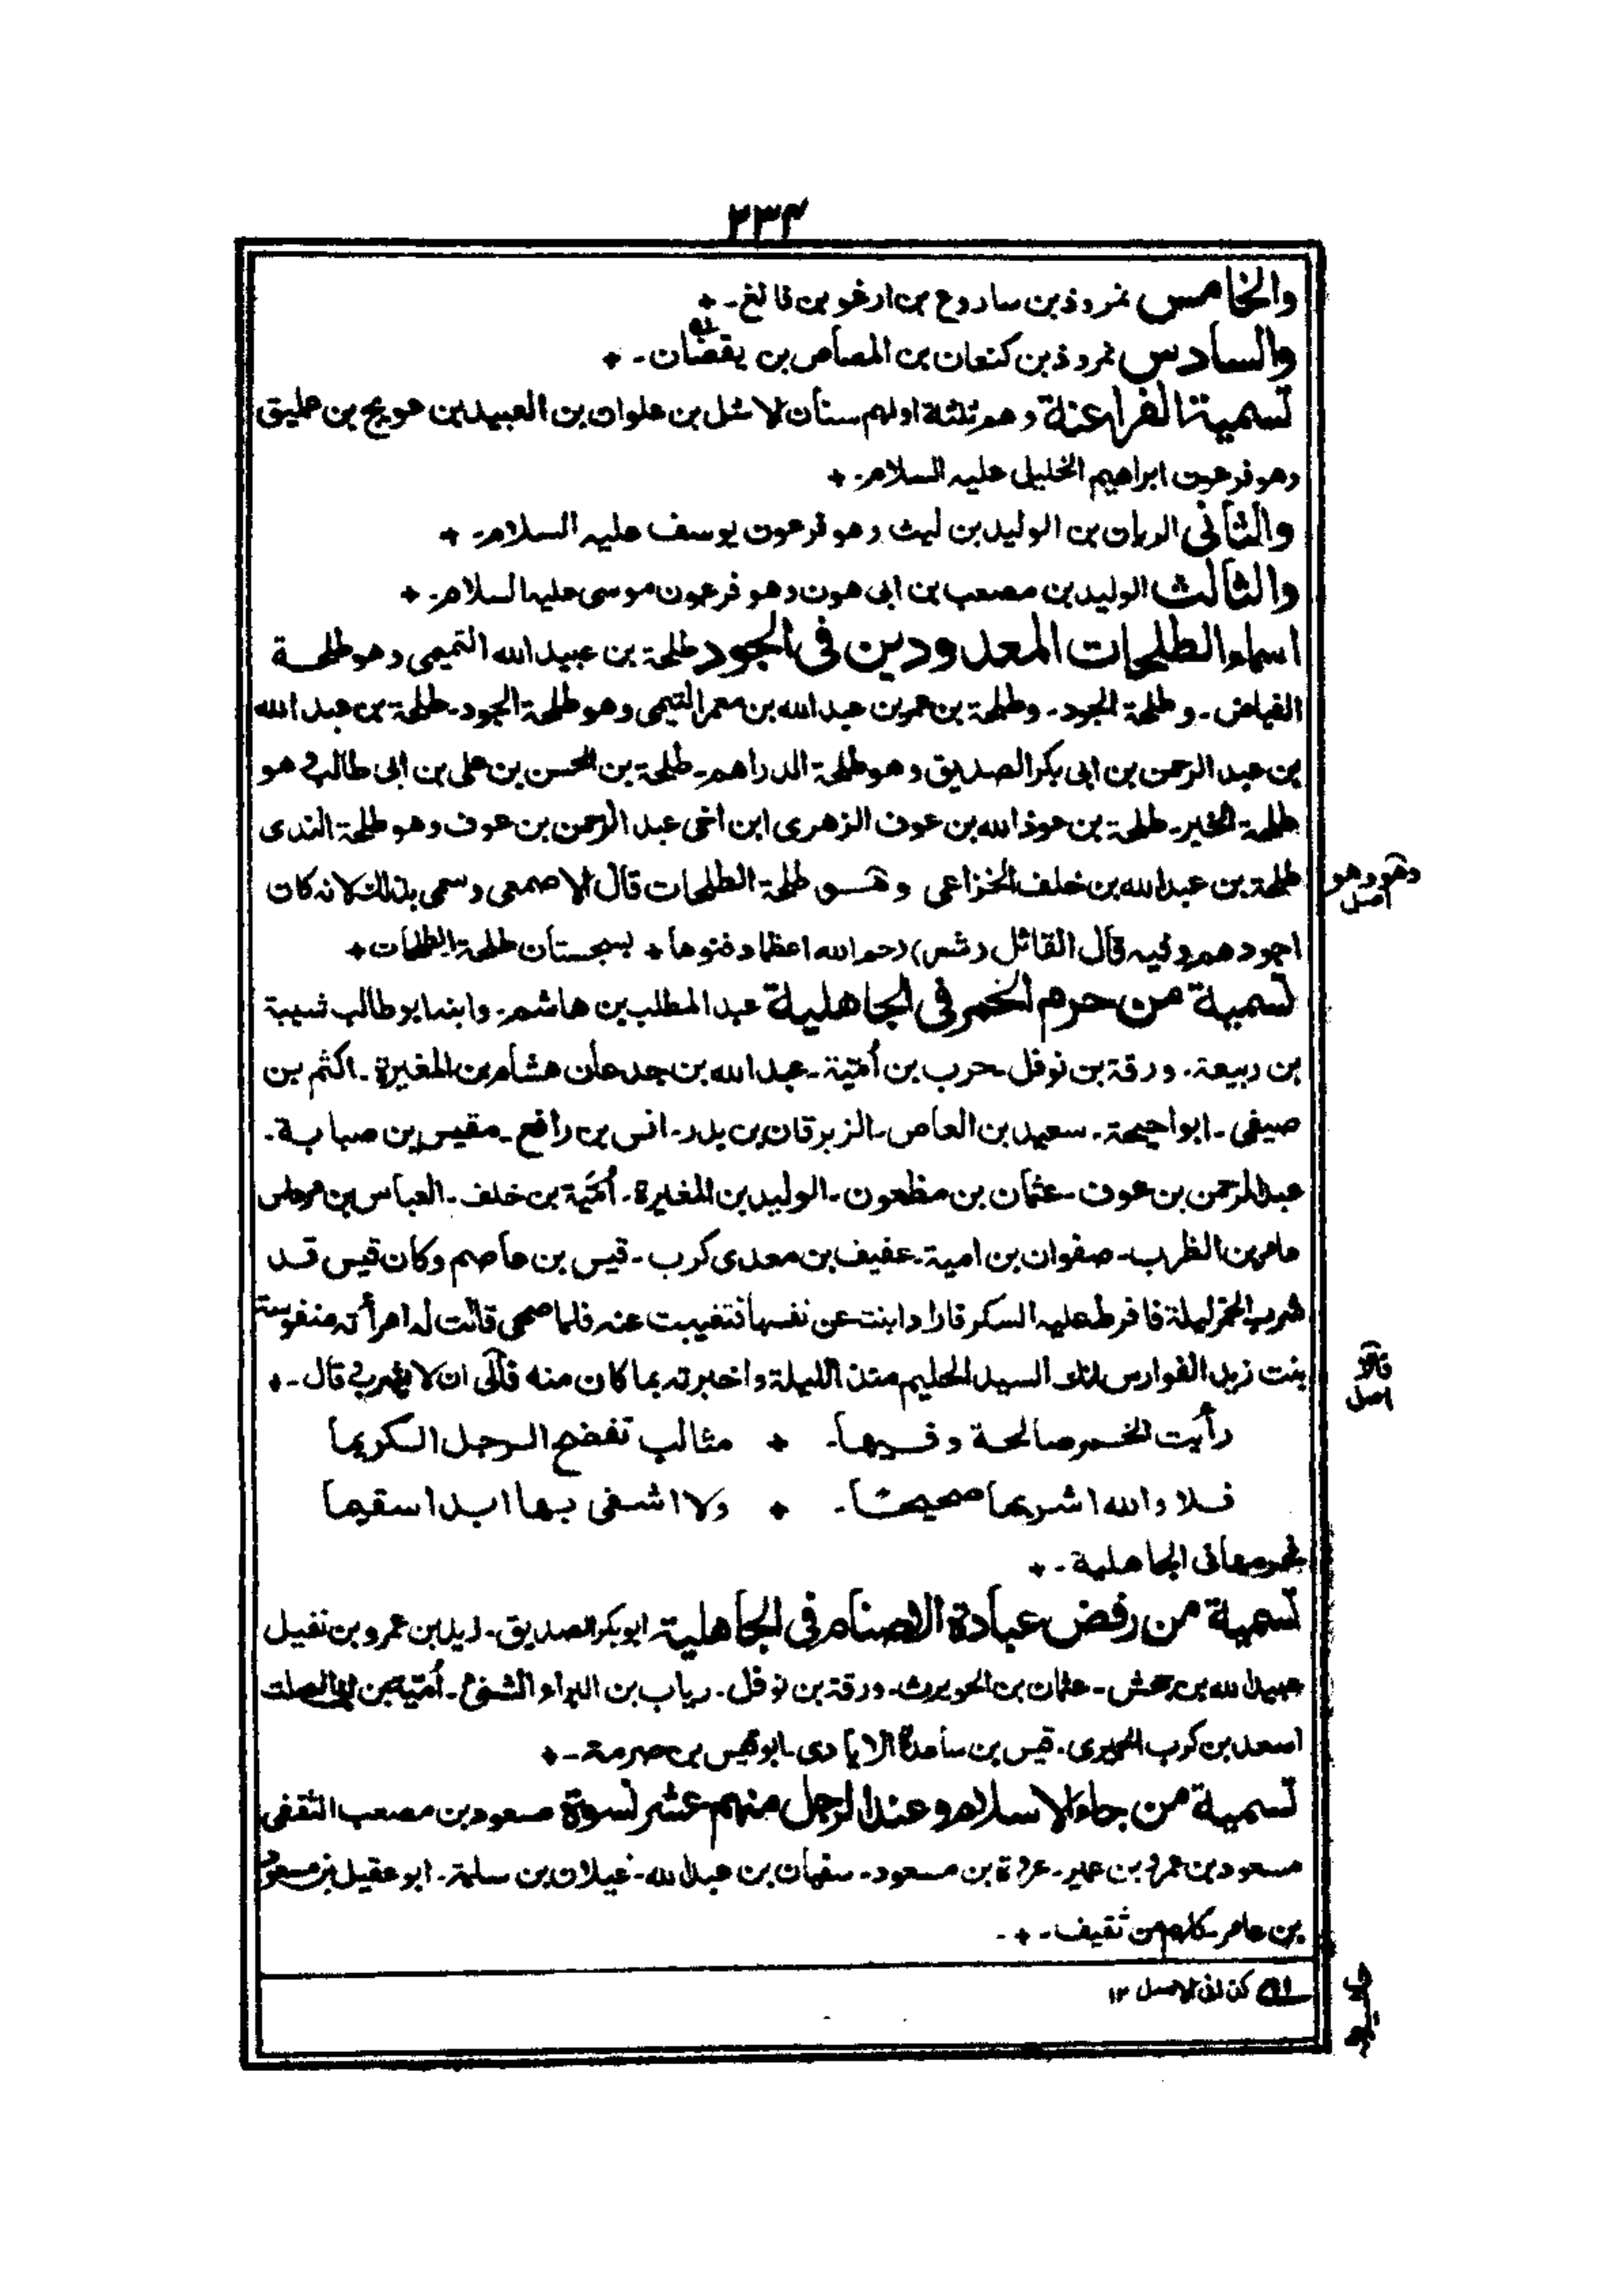 ٢٣٤
والخامس نمروذ بن ساروع بن ارغو بن فالغ-+
والسادس نمروذ بن كنعان بن المصاص بن يقضان-+
تسمية الفراعنة وهم ثلثة اولهم سنان الاشل بن علوان بن العبيد بن عويج بن عمليق
وهو فرعون ابراهيم الخليل عليه السلام-+
والثاني الريان بن الوليد بن ليث وهو فرعون يوسف عليه السلام-+
والثالث الوليد بن مصعب بن ابى هون وهو فرعون موسى عليه السلام-+
اسماء الطلحات المعدودين فى الجود طلحة بن عبيد الله التميمى وهو طلحة
الفياض- و طلحة الجود- وطلحة بن عمر بن عبد الله بن معمر التيمى وهو طلحة الجود- طلحة بن عبد الله
بن عبد الرحمن بن ابى بكر الصديق وهو طلحة الدراهم- طلحة بن الحسن بن على بن ابى طالب وهو
طلحة الخير- طلحة بن عوذ الله بن عوف الزهرى ابن اخى عبد الرحمن بن عوف وهو طلحة الندى
طلحة بن عبد الله بن خلف الخزاعى وهو طلحة الطلحات قال الاصمعى وسمى بذلك لانه كان
وهو وهو
اصل
اجودهم وفيه قال القائل (شعر) رحم الله اعظما دفنوها + بسجستان طلحة الطلحات+
تسمية من حرم الخمر فى الجاهلية عبد المطلب بن هاشم- وابنه ابو طالب شيبة
بن ربيعة- ورقة بن نوفل- حرب بن أمية- عبد الله بن جدعان هشام بن المغيرة- اكثم بن
صيفى- ابو احيحة- سعيد بن العاص- الزبرقان بن بدر- انس بن رافع- مقيس بن صبابة-
عبد الرحمن بن عوف- عثمان بن مظعون- الوليد بن المغيرة- أمية بن خلف- العباس بن مرداس
عامر بن الظرب- صفوان بن امية- عفيف بن معدى كرب- قيس بن عاصم وكان قيس قد
شرب الخمر ليلة فافرط عليه السكر فاراد ابنته عن نفسها فتغيبت عنه فلما صحى قالت له امرأته منفوسة
بنت زيد الفوارس انك السيد الحليم منذ الليلة واخبرته بما كان منه فآلى ان لا يشرب قال-+
قالو
اصل
رأيت الخمر صالحة وفيها- + مثالب تفضح الرجل الكريما
فلا والله اشربها صحيحا- + ولا اشفى بها ابدا سقيما
فحرمها فى الجاهلية-+
تسمية من رفض عبادة الاصنام فى الجاهلية ابو بكر الصديق- زيد بن عمرو بن نفيل
عبيد الله بن جحش- عثمان بن الحويرث- ورقة بن نوفل- رياب بن البراء الشنى- أمية بن ابى الصلت
اسعد بن كرب الحميرى- قيس بن ساعدة الايادى- ابو قيس بن صرمة-+
تسمية من جاء الاسلام وعند الرجل منهم عشر نسوة مسعود بن مصعب الثقفى
مسعود بن عمرو بن عمير- عروة بن مسعود- سفيان بن عبد الله- غيلان بن سلمة- ابو عقيل بن مسعود
بن عامر- كلهم من ثقيف-+-
كذا فى الاصل ١٢